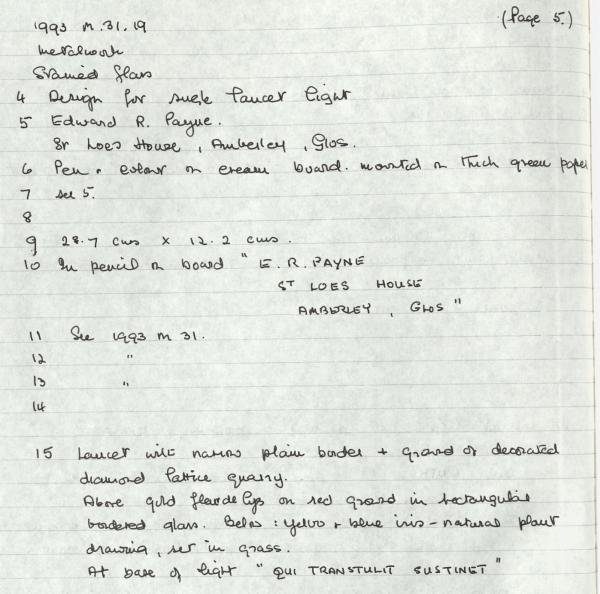 (Page 5.)
1993 M.31.19
Metalwork
Stained Glass
4 Design for single lancet light
5 Edward R. Payne.
St Loes House, Amberley, Glos.
6 Pen + colour on cream board. mounted on thick green paper
7 see 5.
8
9 28.7 cms x 12.2 cms.
10 In pencil on board " E. R. PAYNE
ST LOES HOUSE
AMBERLEY, GLOS "
11 See 1993 M 31.
12 "
13 "
14
15 Lancet with narrow plain border + ground of decorated
diamond lattice quarry.
Above gold fleur de lys on red ground in rectangular
bordered glass. Below: yellow + blue iris - natural plant
drawing, set in grass.
At base of light " QUI TRANSTULIT SUSTINET "